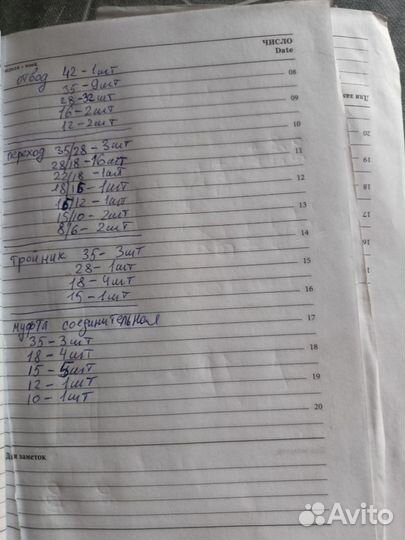 ЧИСЛО
Date
отвод 42-1шт
35-9шт
28-32шт
16-2шт
12-2шт
08
09
10
переход 35/28-3шт
28/18-16шт
22/18-1шт
18/15-1шт
15/12-1шт
15/10-2шт
8/6-2шт
11
12
13
14
тройник 35-3шт
28-1шт
18-4шт
15-1шт
15
16
муфта соединительная
35-3шт
18-4шт
15-5шт
12-1шт
10-1шт
17
18
19
20
Для заметок
20
19
18
17
Avito